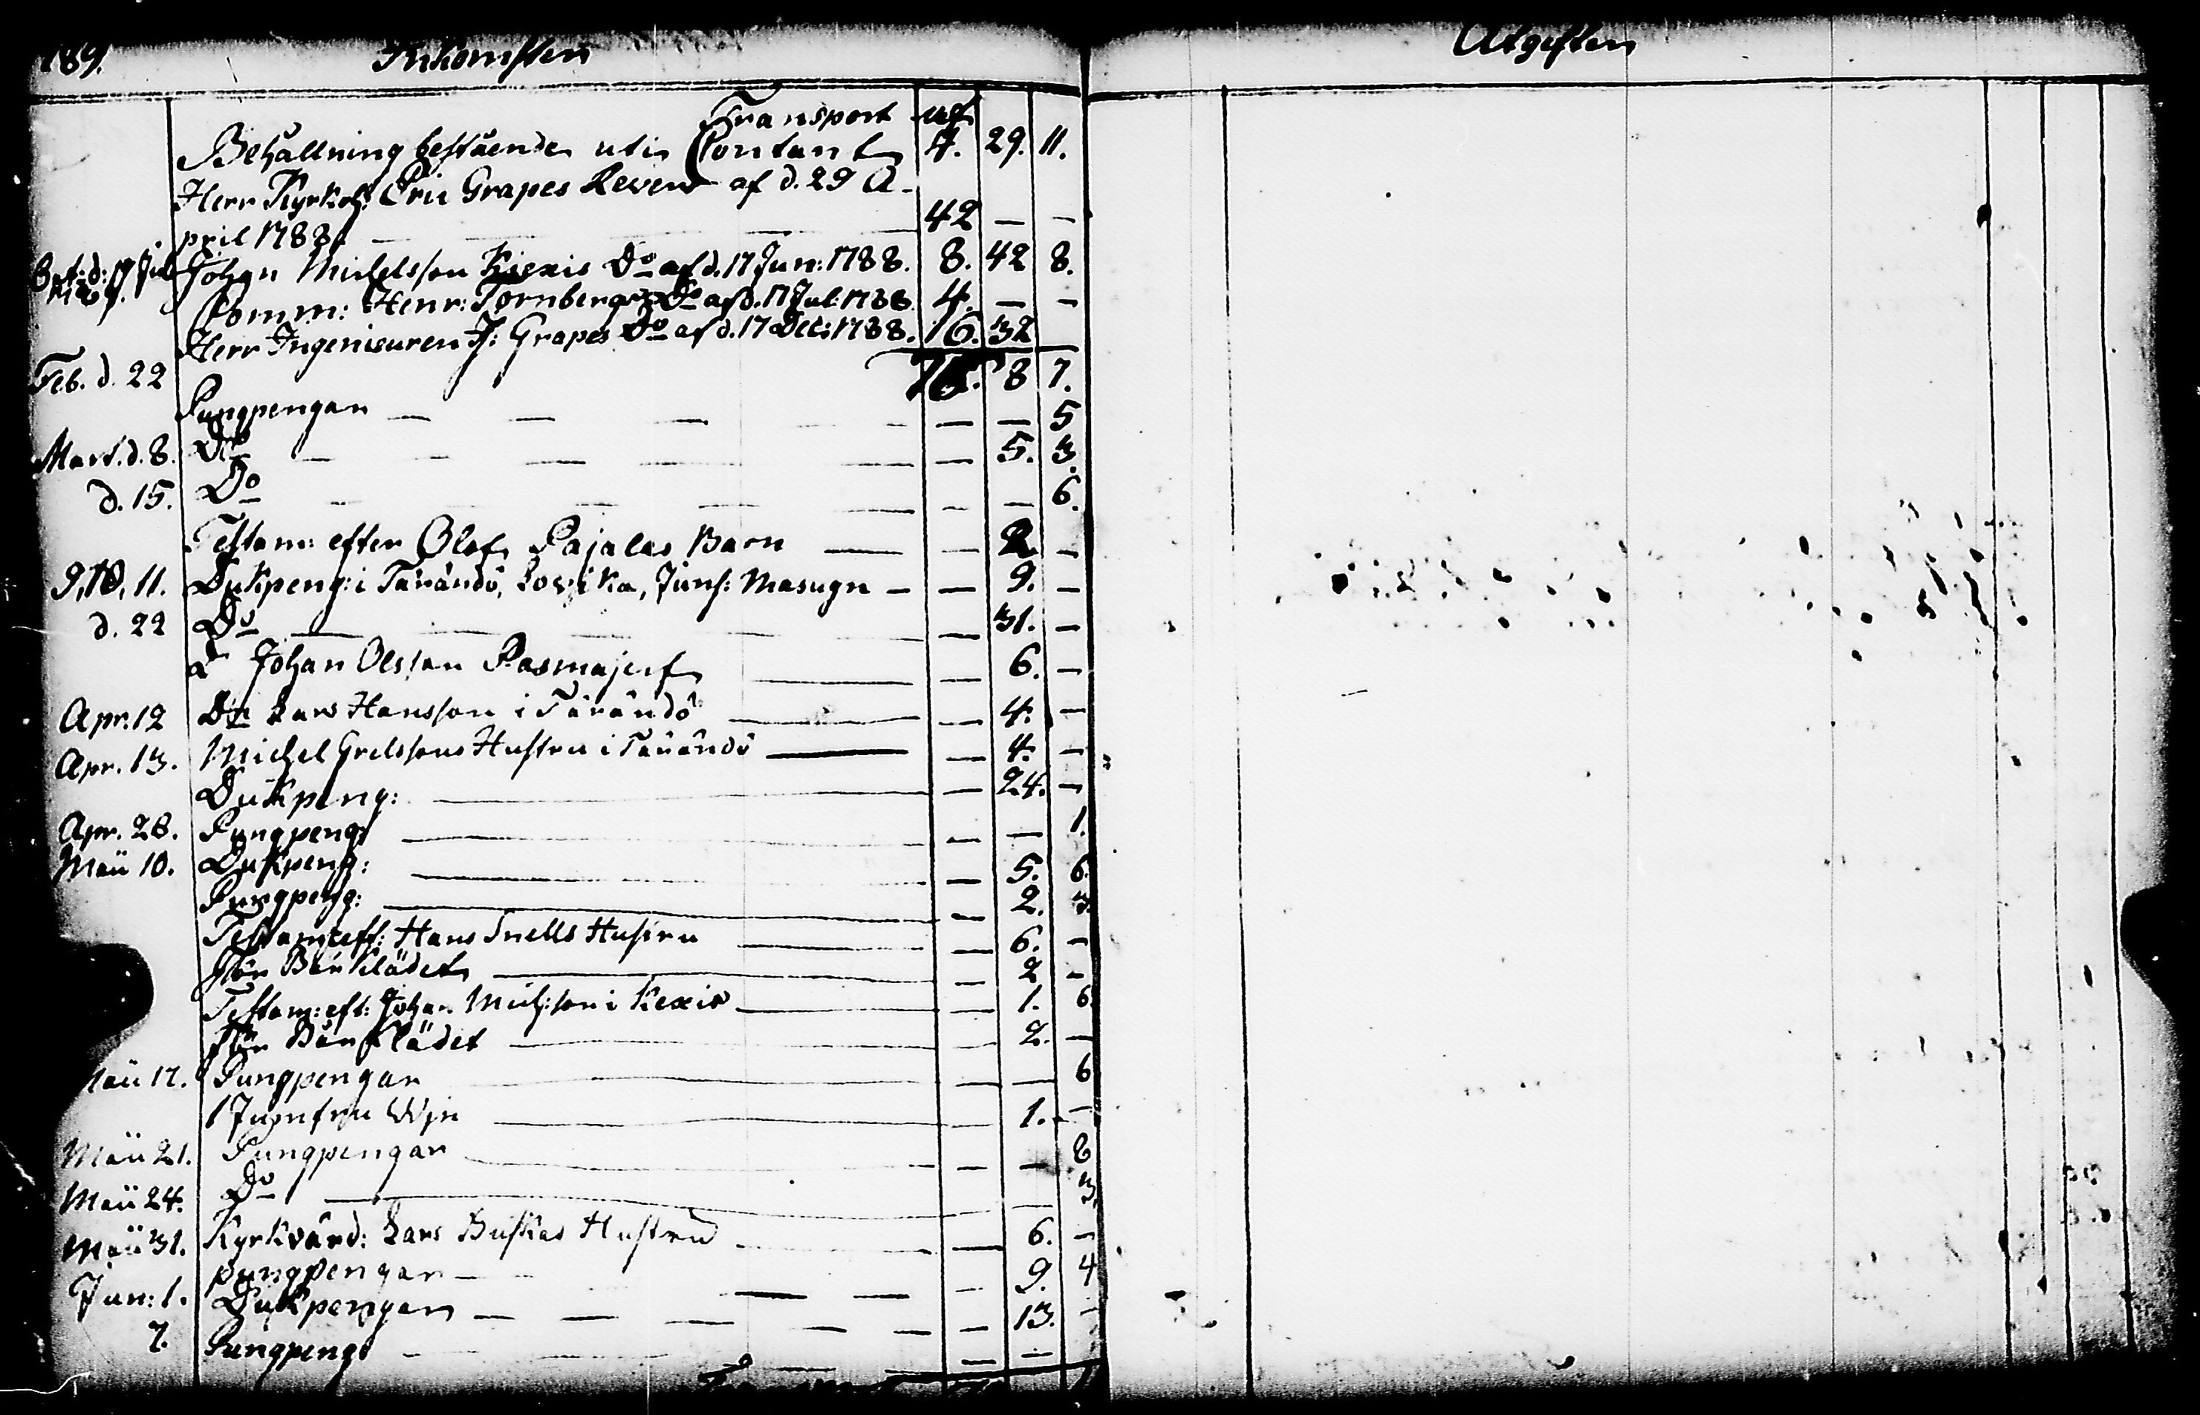 189. Inkomsten
Transport
Behållning bestående uti Contant 4. 29. 11.
Herr Kyrkoh: Eric Grapes Revers af d. 29 A-
pril 1788. — — — 42 — —
Johan Michelsson Kexis Do af d. 17 Jun: 1788. 8. 42 8.
Comm: Henr: Tornbergs Do af d. 17 Jul: 1788. 4. — —
Herr Ingenieuren J: Grapes Do af d. 17 Dec: 1788. 16. 32
Feb. d. 22 8 7.
Pungpengar — — — — — 5
Mart. d. 8. Do — — — — 5. 3.
d. 15. Do — — — — — 6.
Testam: efter Olof Pajalas Barn — — 2 —
9, 10, 11. Dukpeng: i Tärändö, Lovika, Juns: Masugn — — 9. —
d. 22 Do — — — 31. —
Do Johan Olsson Rasmajerf — — 6. —
Apr. 12 Do Lars Hansson i Tärändö — — 4. —
Apr. 13. Michel Grelssons Hustru i Tärändö — — 4. —
Dukpeng: — — 24. —
Apr. 26. Pungpeng: — — — 1.
Maii 10. Dukpeng: — — 5. 6.
Pungpeng: — — 2. 3.
Testam: eft: Hans Snells Hustru — — 6. —
För Bårklädet — — 2 —
Testam: eft: Johan Mich:son i Kexis — — 1. 6.
För Bårklädet — — 2. —
Maii 17. Pungpengar — — — 6
1 Jumfru Win — — 1. —
Maii 21. Pungpengar — — — 8
Maii 24. Do — — — 3.
Maii 31. Kyrkvärd: Lars Buskas Hustru — — 6. —
pungpengar — — 9. 4
Jun: 1. Dukpengar — — — 13. —
7. Pungpeng: — — — —
Utgiften